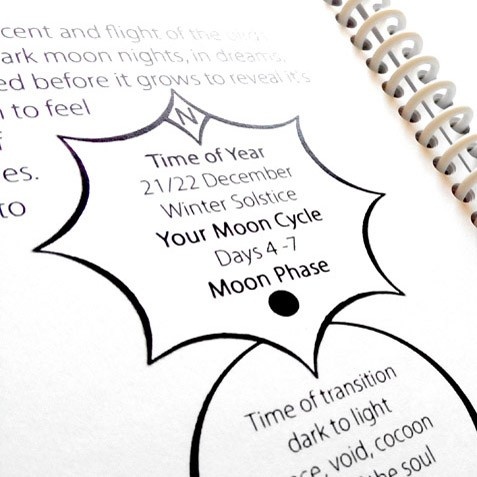 cent and flight of the
ark moon nights, in dreams.
ed before it grows to reveal it's
to feel
f
es.
to
N
Time of Year
21/22 December
Winter Solstice
Your Moon Cycle
Days 4 -7
Moon Phase
Time of transition
dark to light
ce, void, cocoon
the soul